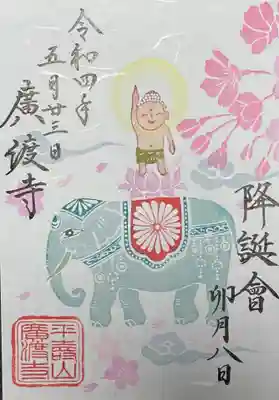 降誕會
卯月八日
令和四年
五月廿三日
廣渡寺
平等山
廣渡寺